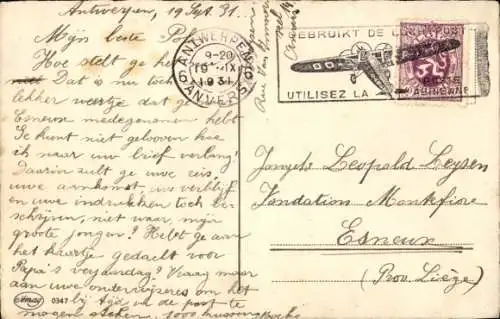 Antwerpen, 19 Spt. 31.
Mijn beste
Hoe stelt ge het
Dat is nu toch
lekker weertje dat ge
Esneux medegenomen hebt
Ge kunt niet gelooven hoe
ik naar uw brief verlang!
Daarin zult ge uwe reis,
uwe aankomst, uw verblijf
en uwe indrukken toch be-
schrijven, niet waar, mijn
groote jongen? Hebt ge aan
het kaartje gedacht voor
Papa's verjaardag? Vraag maar
aan uwe onderwijzeres om het
bij tijd in de post te
mogen steken. 1000 kussen
ANTWERPEN 6
9-20
19 IX
1931
6 ANVERS
GEBRUIKT DE LUCHTPOST
UTILISEZ LA POSTE AERIENNE
Rue Van
Jongh. Leopold Leysen
Fondation Montefiore
Esneux
(Prov. Liège)
0347